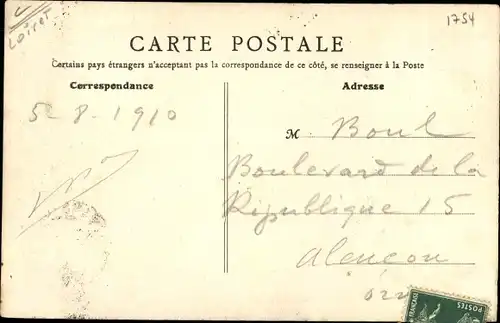 Loiret
1754
CARTE POSTALE
Certains pays étrangers n'acceptant pas la correspondance de ce côté, se renseigner à la Poste
Correspondance
Adresse
5-8-1910
M. Boul
Boulevard de la
République 15
Alençon
Orn
POSTES